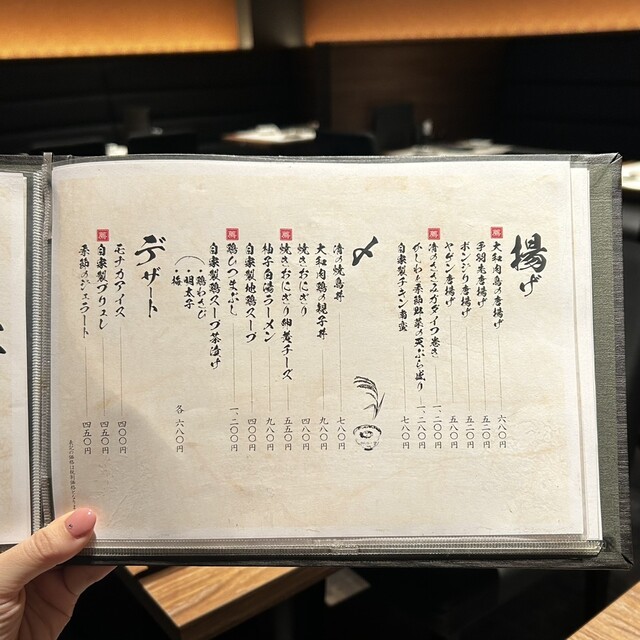 揚げ
大和肉鳥の唐揚げ 六八〇円
手羽先唐揚げ 五二〇円
ボンジリ唐揚げ 五二〇円
ヤゲン唐揚げ 五八〇円
一、二〇〇円
かしわと季節野菜の天ぷら盛り 一、二〇〇円
自家製チキン南蛮 七八〇円
〆
清の焼鳥丼 七八〇円
大和肉鶏の親子丼 九八〇円
焼きおにぎり 四八〇円
焼きおにぎり チーズ 五五〇円
柚子白湯ラーメン 九八〇円
自家製地鶏スープ 四〇〇円
鶏ひつまぶし 一、二〇〇円
自家製鶏スープ茶漬け 各 六八〇円
・鶏わさび
・明太子
・梅
デザート
モナカアイス 四〇〇円
自家製ブリュレ 四五〇円
季節のジェラート 四五〇円